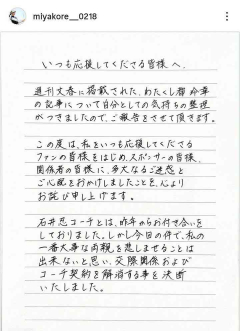 miyakore__0218
いつも応援してくださる皆様へ、
週刊文春に掲載された、わたくし都 命華
の記事について自分としての気持ちの整理
がつきましたので、ご報告をさせて頂きます。
この度は、私をいつも応援してくださる
ファンの皆様をはじめ、スポンサーの皆様、
関係者の皆様に、多大なるご迷惑と
ご心配をおかけしましたことを、心より
お詫び申し上げます。
石井忍コーチとは、昨年からお付き合いを
しておりました。しかし今回の件で、私の
一番大事な両親を悲しませることは
出来ないと思い、交際関係および
コーチ契約を解消する事を決断
いたしました。